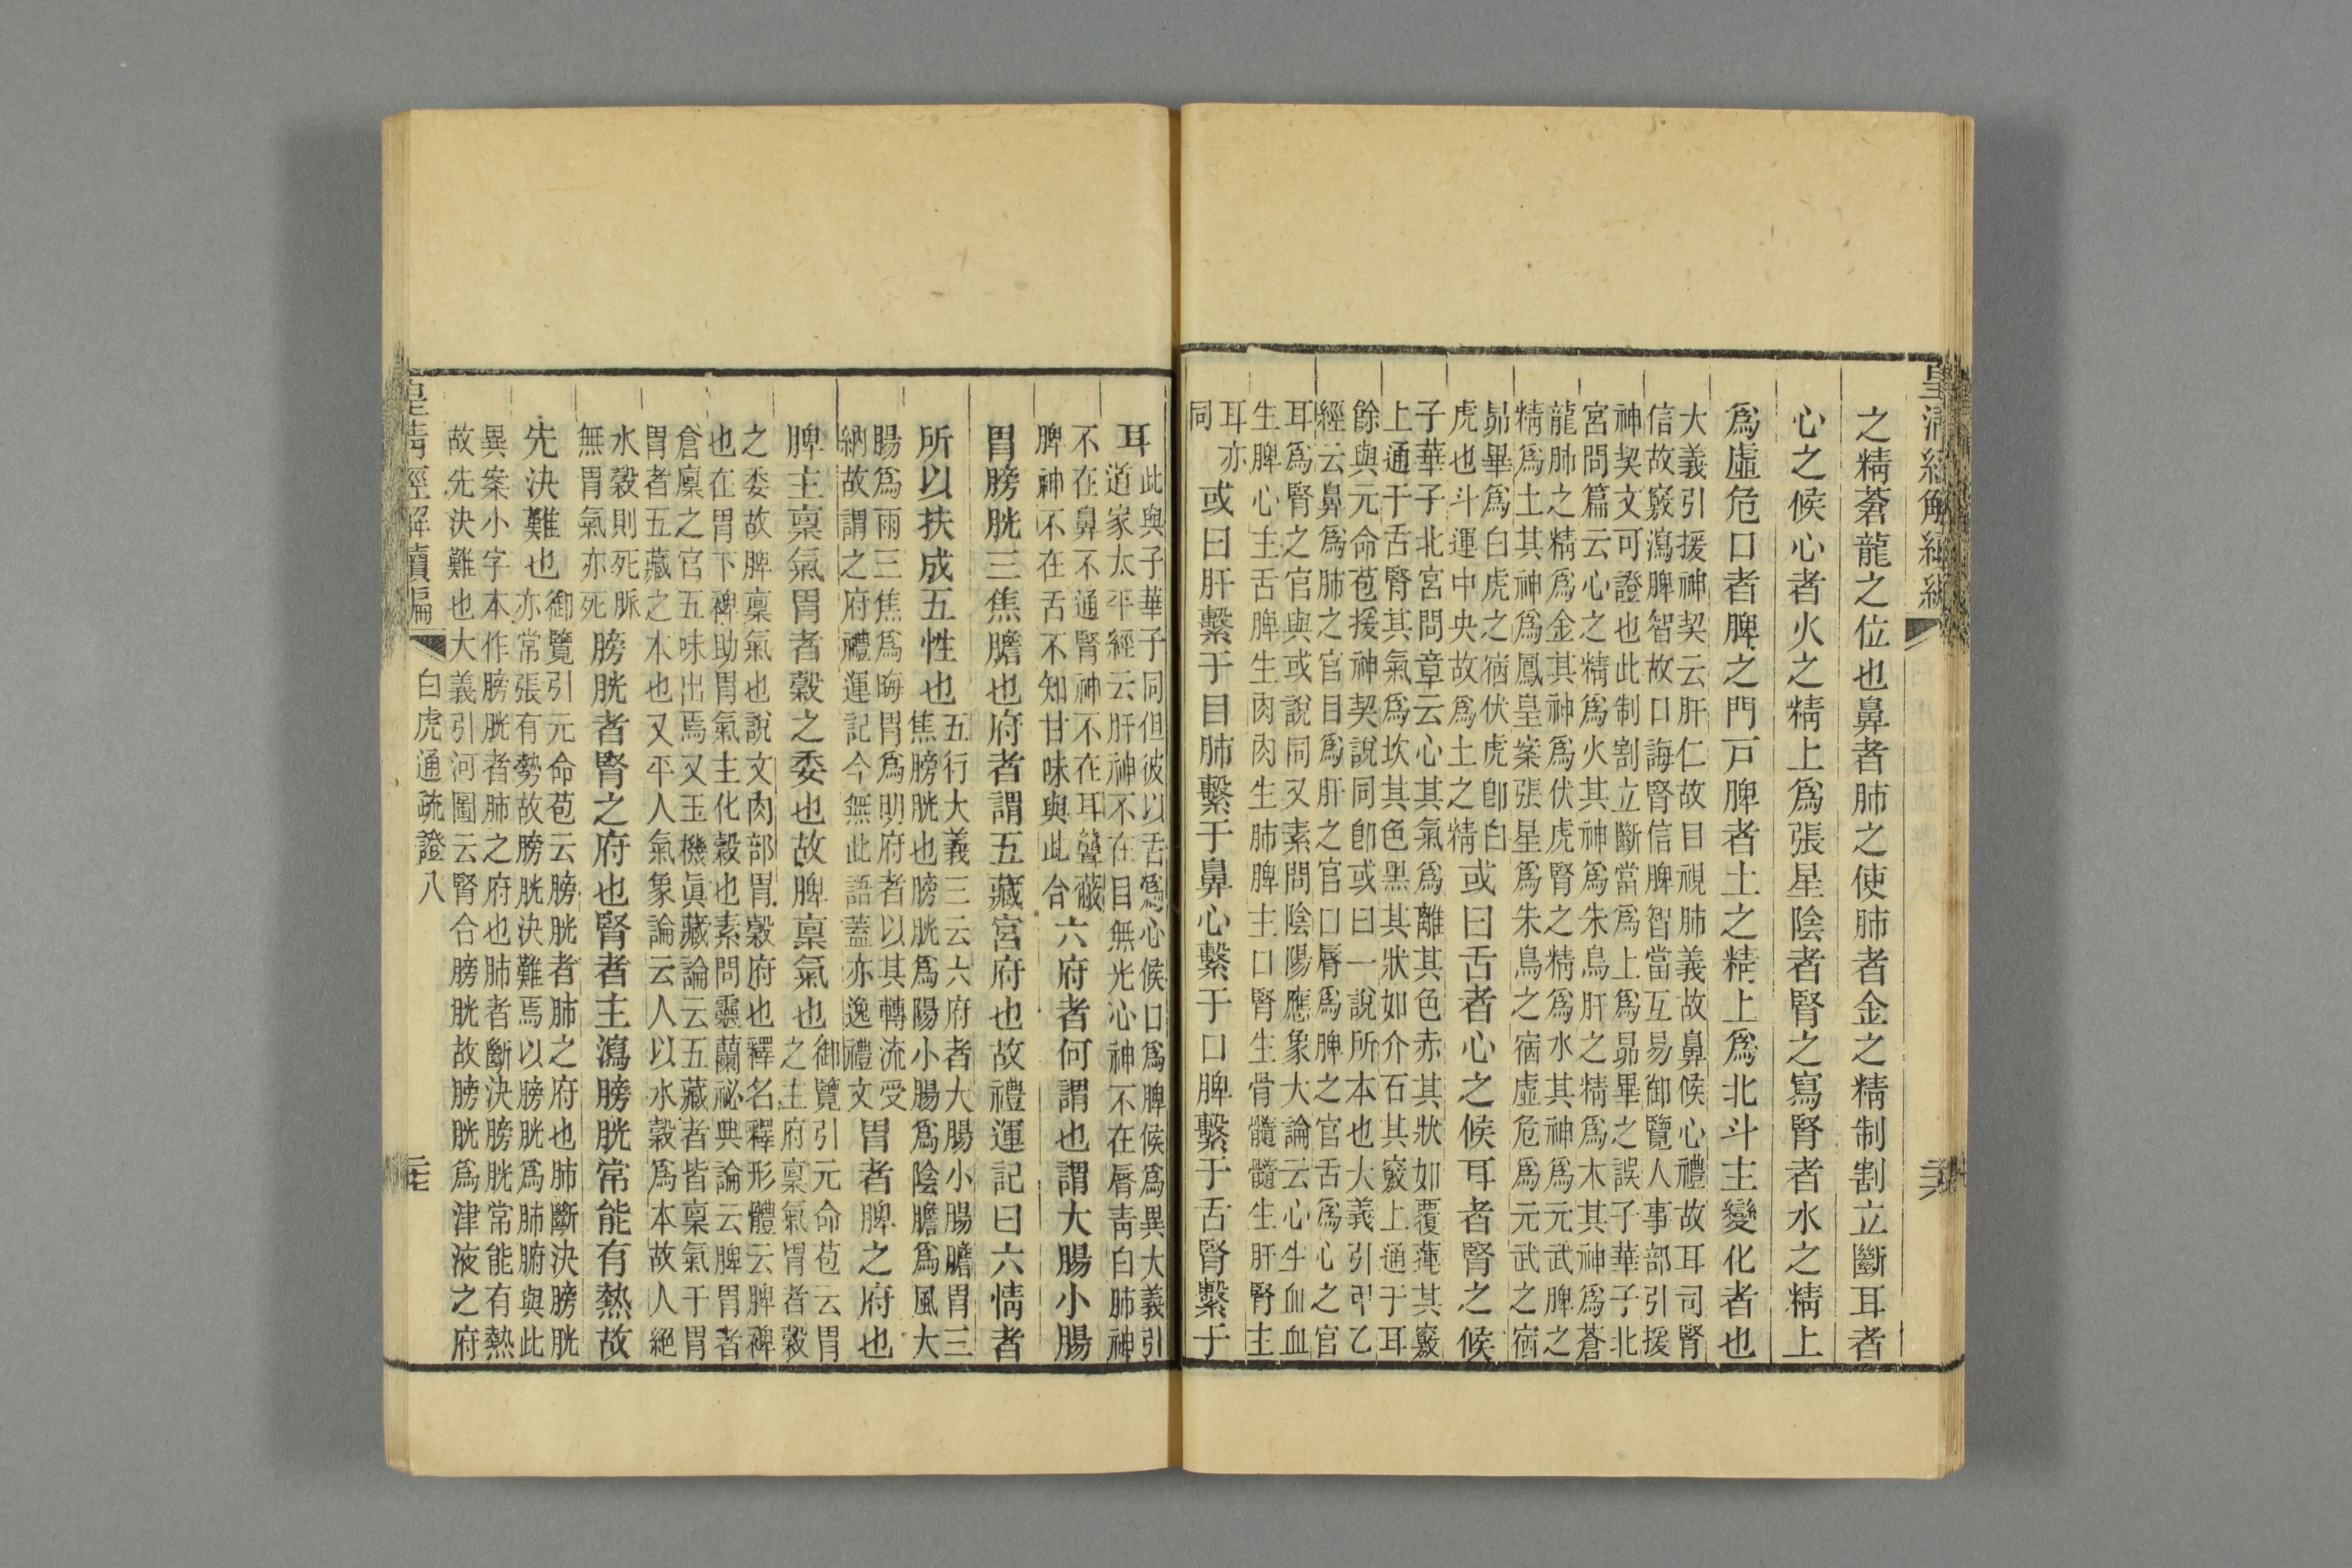 皇清經解續編
之精蒼龍之位也鼻者肺之使肺者金之精制割立斷耳者
心之候心者火之精上爲張星陰者腎之寫腎者水之精上
爲虛危口者脾之門戸脾者土之精上爲北斗主變化者也
大義引援神契云肝仁故目視肺義故鼻候心禮故耳司腎
信故竅瀉脾智故口誨腎信脾智當互易御覽人事部引援
神契文可證也此制割立斷當爲上爲昴畢之誤子華子北
宮問篇云心之精爲火其神爲朱鳥肝之精爲木其神爲蒼
龍肺之精爲金其神爲伏虎腎之精爲水其神爲元武脾之
精爲土其神爲鳳皇案張星爲朱鳥之宿虛危爲元武之宿
昴畢爲白虎之宿伏虎卽白
虎也斗運中央故爲土之精
或曰舌者心之候耳者腎之候
子華子北宮問章云心其氣爲離其色赤其狀如覆蓮其竅
上通于舌腎其氣爲坎其色黑其狀如介石其竅上通于耳
餘與元命苞援神契說同卽或曰一說所本也大義引甲乙
經云鼻爲肺之官目爲肝之官口脣爲脾之官舌爲心之官
耳爲腎之官與或說同又素問陰陽應象大論云心生血血
生脾心主舌脾生肉肉生肺脾主口腎生骨髓髓生肝腎主
耳亦
同
或曰肝繫于目肺繫于鼻心繫于口脾繫于舌腎繫于
耳
此與子華子同但彼以舌爲心候口爲脾候爲異大義引
道家太平經云肝神不在目無光心神不在脣靑白肺神
不在鼻不通腎神不在耳聾蔽
脾神不在舌不知甘味與此合
六府者何謂也謂大腸小腸
胃膀胱三焦膽也府者謂五藏宮府也故禮運記曰六情者
所以扶成五性也
五行大義三云六府者大腸小腸膽胃三
焦膀胱也膀胱爲陽小腸爲陰膽爲風大
腸爲雨三焦爲晦胃爲明府者以其轉流受
納故謂之府禮運記今無此語蓋亦逸禮文
胃者脾之府也
脾主稟氣胃者穀之委也故脾稟氣也
御覽引元命苞云胃
之主府稟氣胃者穀
之委故脾稟氣也說文肉部胃穀府也釋名釋形體云脾裨
也在胃下裨助胃氣主化穀也素問靈蘭祕典論云脾胃者
倉廩之官五味出焉又玉機眞藏論云五藏者皆稟氣于胃
胃者五藏之本也又平人氣象論云人以水穀爲本故人絕
水穀則死脈
無胃氣亦死
膀胱者腎之府也腎者主瀉膀胱常能有熱故
先決難也
御覽引元命苞云膀胱者肺之府也肺斷決膀胱
亦常張有勢故膀胱決難焉以膀胱爲肺腑與此
異案小字本作膀胱者肺之府也肺者斷決膀胱常能有熱
故先決難也大義引河圖云腎合膀胱故膀胱爲津液之府
皇清經解續編
白虎通疏證八